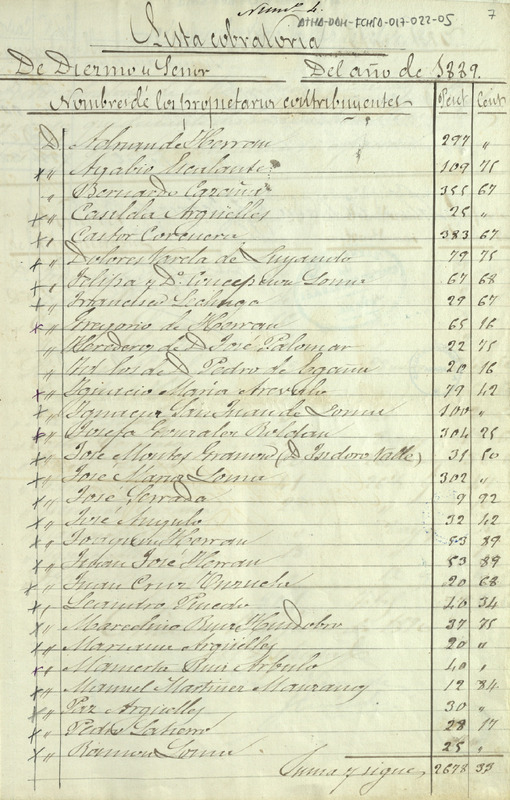 Num.º 4.
ATHA-DAH-FCHSA-017-022-05
7
Lista cobratoria
De Diezmo u Señor Del año de 1889.
Nombres de los propietarios contribuyentes Peset Cént
D. Adrian de Herran 297 "
x " Agabio Escalante 109 75
" Bernardo Cazaña 355 67
x " Casilda Argüelles 25 "
x " Castor Corcuera 383 67
x " Dolores Varela de Luyando 79 75
x " Felipa y Dª Concepcion Loma 67 68
x " Francisco 29 67
x " Gregorio de Herran 65 16
" Herederos de D José Palomar 22 75
" de D Pedro de Egaña 20 16
x " Ignacio Maria Arevalo 79 42
x " Ignacia San Juan de Loma 100 "
x " Josefa Gonzalez Roldan 304 25
x " José Montes Gramon (D Isidoro Valle) 35 50
x " José Maria Loma 302 "
x " José Serrada 9 92
x " José Angulo 32 42
x " de Herran 53 89
x " Juan José Herran 53 89
x " Juan Cruz 20 68
x " Leandro Pinedo 40 34
x " Marcelino Ruiz Huidobro 37 75
x " Mariana Argüelles 20 "
x " Mamerta Ruiz Arbulo 40 "
x " Manuel Martinez Manzanos 12 84
x " Paz Argüelles 30 "
x " Pedro 28 17
x " Ramon Loma 25 "
Suma y sigue 2678 33